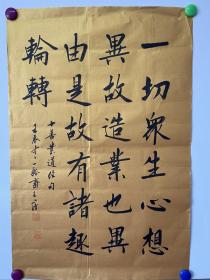 一切衆生心想
異故造業也異
由是故有諸趣
輪轉
十善業道經句